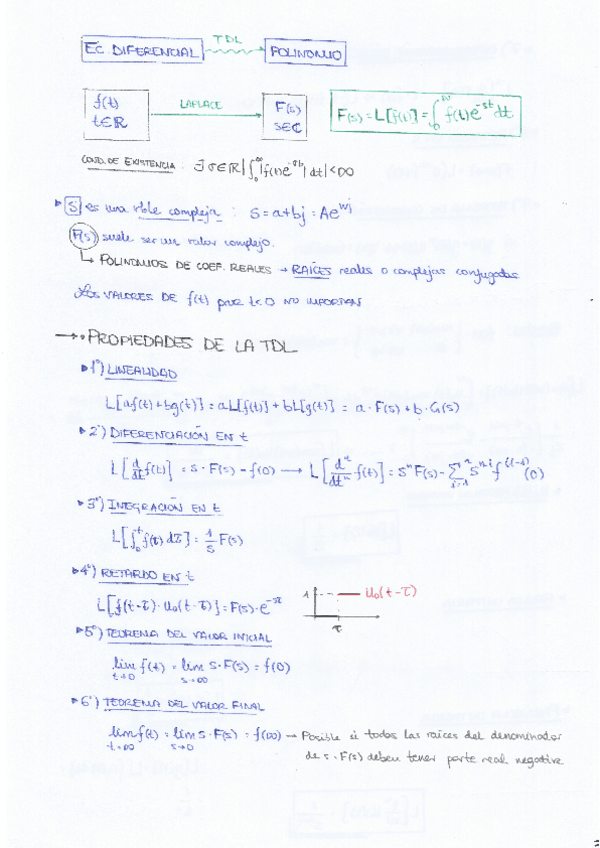 EC. DIFERENCIAL TDL POLINOMIO
f(t) t∈ℝ LAPLACE F(s) s∈ℂ F(s) = L[f(t)] = ∫₀^∞ f(t)e^{-st}dt
COND. DE EXISTENCIA : ∃ σ∈ℝ | ∫₀^∞ |f(t)e^{-σt}| dt | < ∞
S es una vble compleja : S = a+bj = Ae^{wj}
F(s) suele ser un valor complejo.
↳ POLINOMIOS DE COEF. REALES → RAÍCES reales o complejas conjugadas
Los VALORES DE f(t) para t<0 NO IMPORTAN
→ PROPIEDADES DE LA TDL
1º) LINEALIDAD
L[af(t)+bg(t)] = aL[f(t)] + bL[g(t)] = a·F(s)+b·G(s)
2º) DIFERENCIACIÓN EN t
L[d/dt f(t)] = s·F(s) - f(0) → L[dⁿ/dtⁿ f(t)] = sⁿF(s) - Σ_{i=1}^{n} s^{n-i} f^{(i-1)}(0)
3º) INTEGRACIÓN EN t
L[∫₀ᵗ f(τ)dτ] = 1/s F(s)
4º) RETARDO EN t
L[f(t-τ)·U₀(t-τ)] = F(s)·e^{-sτ} 1 U₀(t-τ)
τ
5º) TEOREMA DEL VALOR INICIAL
lim_{t→0} f(t) = lim_{s→∞} s·F(s) = f(0)
6º) TEOREMA DEL VALOR FINAL
lim_{t→∞} f(t) = lim_{s→0} s·F(s) = f(∞) → Posible si todas las raíces del denominador
de s·F(s) deben tener parte real negativa